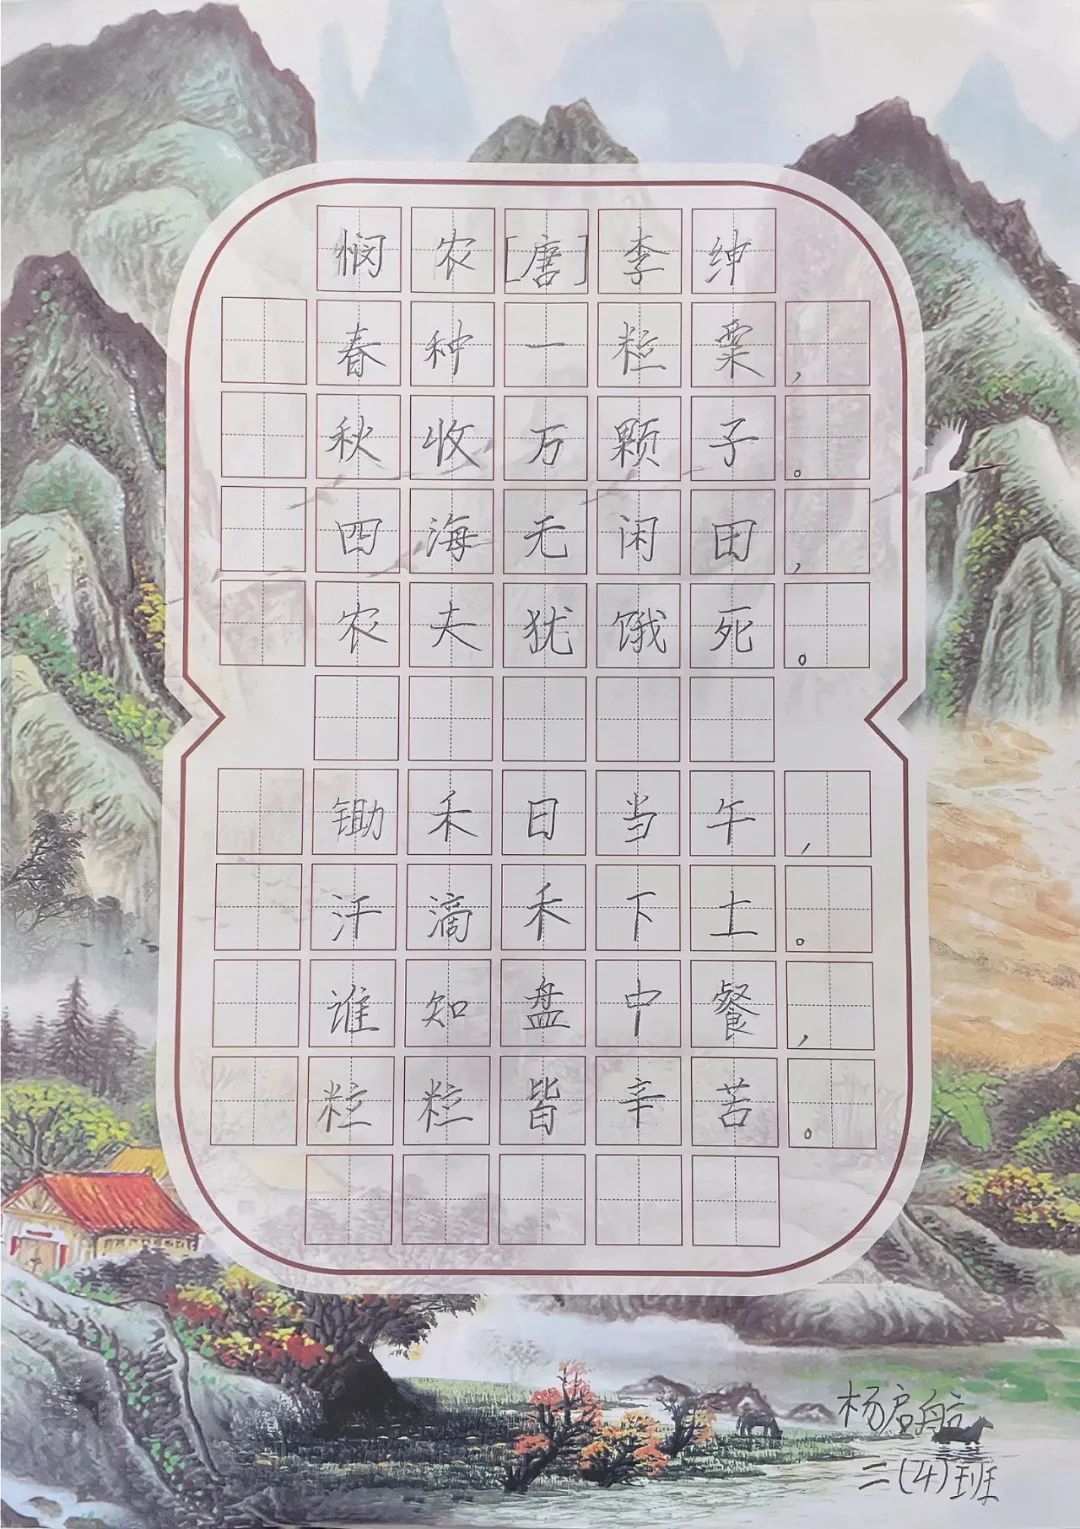 悯农[唐]李绅
春种一粒粟，
秋收万颗子。
四海无闲田，
农夫犹饿死。
锄禾日当午，
汗滴禾下土。
谁知盘中餐，
粒粒皆辛苦。
杨启航
二(4)班